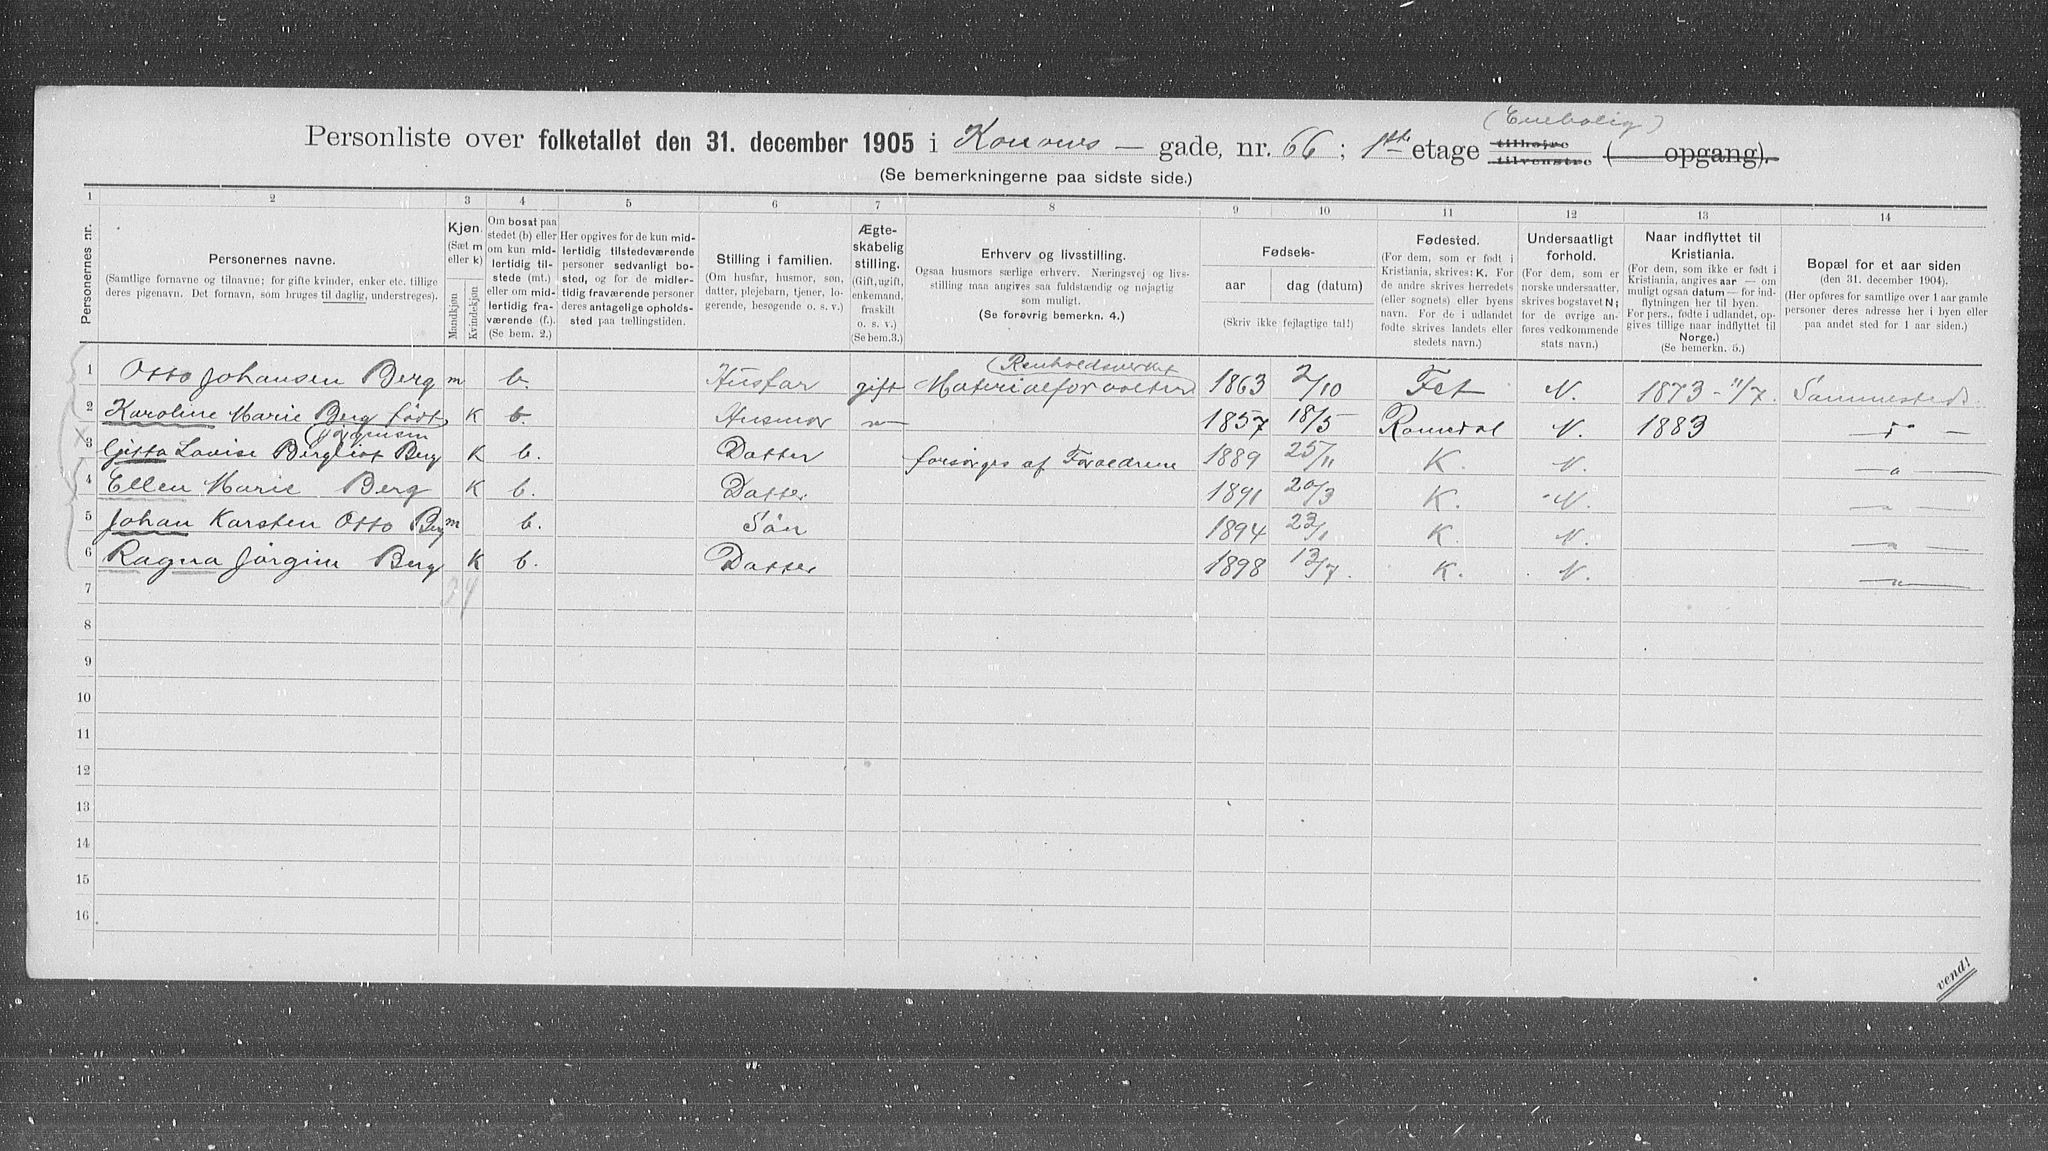 (Enebolig)
Personliste over folketallet den 31. december 1905 i Konows — gade, nr. 66 ; 1ste etage tilhøjre tilvenstre ( opgang).
(Se bemerkningerne paa sidste side.)
1 2 3 4 5 6 7 8 9 10 11 12 13 14
Personernes nr.
Personernes navne.
(Samtlige fornavne og tilnavne; for gifte kvinder, enker etc. tillige
deres pigenavn. Det fornavn, som bruges til daglig, understreges).
Kjøn.
(Sæt m
eller k)
Mandkjøn
Kvindekjøn
Om bosat paa
stedet (b) eller
om kun mid-
lertidig til-
stede (mt.)
eller om mid-
lertidig fra-
værende (f.).
(Se bem. 2.)
Her opgives for de kun mid-
lertidig tilstedeværende
personer sedvanligt bo-
sted, og for de midler-
tidig fraværende personer
deres antagelige opholds-
sted paa tællingstiden.
Stilling i familien.
(Om husfar, husmor, søn,
datter, plejebarn, tjener, lo-
gerende, besøgende o. s. v.)
Ægte-
skabelig
stilling.
(Gift, ugift,
enkemand,
fraskilt
o. s. v.)
(Se bem.3.)
Erhverv og livsstilling.
Ogsaa husmors særlige erhverv. Næringsvej og livs-
stilling maa angives saa fuldstændig og nøjagtig
som muligt.
(Se forøvrig bemerkn. 4.)
Fødsels-
aar dag (datum)
(Skriv ikke fejlagtige tal!)
Fødested.
(For dem, som er født i
Kristiania, skrives: K. For
de andre skrives herredets
(eller sognets) eller byens
navn. For de i udlandet
fødte skrives landets eller
stedets navn.)
Undersaatligt
forhold.
(For dem, som er
norske undersaatter,
skrives bogstavet N;
for de øvrige an-
føres vedkommende
stats navn.)
Naar indflyttet til
Kristiania.
(For dem, som ikke er født i
Kristiania, angives aar — om
muligt ogsaa datum — for ind-
flytningen her til byen.
For pers., født i udlandet, op-
gives tillige naar indflyttet til
Norge.)
(Se bemerkn. 5.)
Bopæl for et aar siden
(den 31. december 1904).
(Her opføres for samtlige over 1 aar gamle
personer deres adresse her i byen eller
paa andet sted for 1 aar siden.)
(Renholdsverket
1 Otto Johansen Berg m b. Husfar gift Materialforvalter 1863 2/10 Fet N. 1873 - 11/7. Sammesteds.
2 Karoline Marie Berg født K b. Husmor " 1857 18/5 Romedal N. 1883 — " —
Jörgensen
3 Gitta Lovise Bergliot Berg K b. Datter forsørges af Forældrene 1889 25/11 K. N. — " —
4 Ellen Marie Berg K b. Datter 1891 20/3 K. N. — " —
5 Johan Karsten Otto Berg m b. Sön 1894 23/1 K. N. — " —
6 Ragna Jörgine Berg K b. Datter 1898 13/7. K. N. — " —
7
8
9
10
11
12
13
14
15
16
vend!